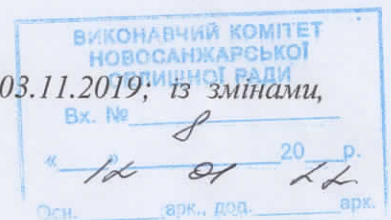 ВИКОНАВЧИЙ КОМІТЕТ
НОВОСАНЖАРСЬКОЇ
СЕЛИЩНОЇ РАДИ
03.11.2019; із змінами,
Вх. № 8
«12» 01 20 22 р.
Осн. арк., дод. арк.